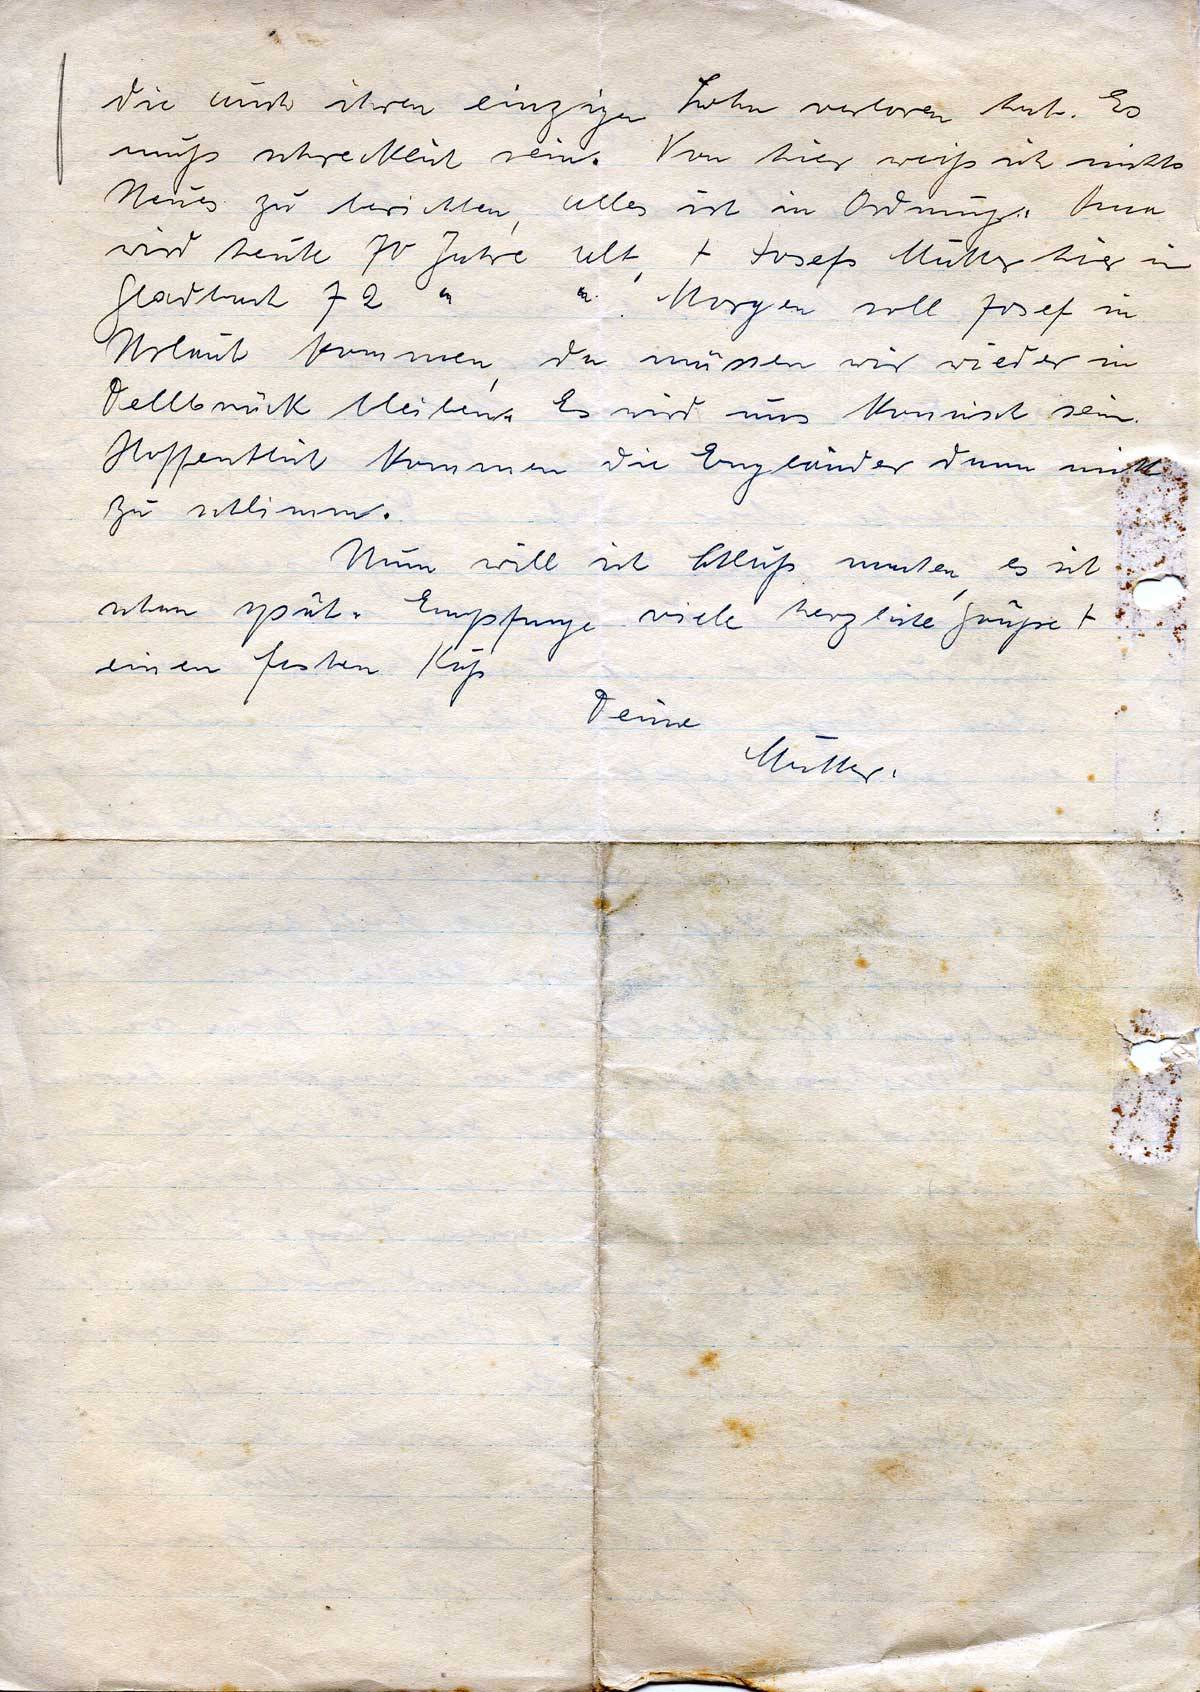 die auch ihren einzigen Sohn verloren hat. Es
muß schrecklich sein. Von hier weiß ich nichts
Neues zu berichten, alles ist in Ordnung. Oma
wird heute 70 Jahre alt, + Josefs Mutter hier in
Gladbach 72 " ". Morgen soll Josef in
Urlaub kommen, da müssen wir wieder in
Dellbrück bleiben. Es wird uns komisch sein.
Hoffentlich kommen die Engländer dann nicht
zu schlimm.
Nun will ich Schluß machen, es ist
schon spät. Empfange viele herzliche Grüße +
einen festen Kuß
Deine
Mutter.